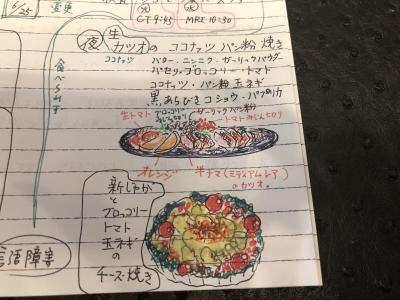 6/25
変更
CT 9:45
MRI 10:30
夜 生カツオのココナッツパン粉焼き
食べられず
ココナッツ
バター・ニンニク・ガーリックパウダー
パセリ・ブロッコリー・トマト
ココナッツ・パン粉 玉ネギ
黒あらびきコショウ・パプリカ
生トマト
ブロッコリーみじん切り
ガーリックパン粉
トマトみじん切り
オレンジ
半ナマ(ミディアムレア)
のカツオ。
新じゃが
と
ブロッコリー
トマト
玉ネギ
の
チーズ焼き
言語障害